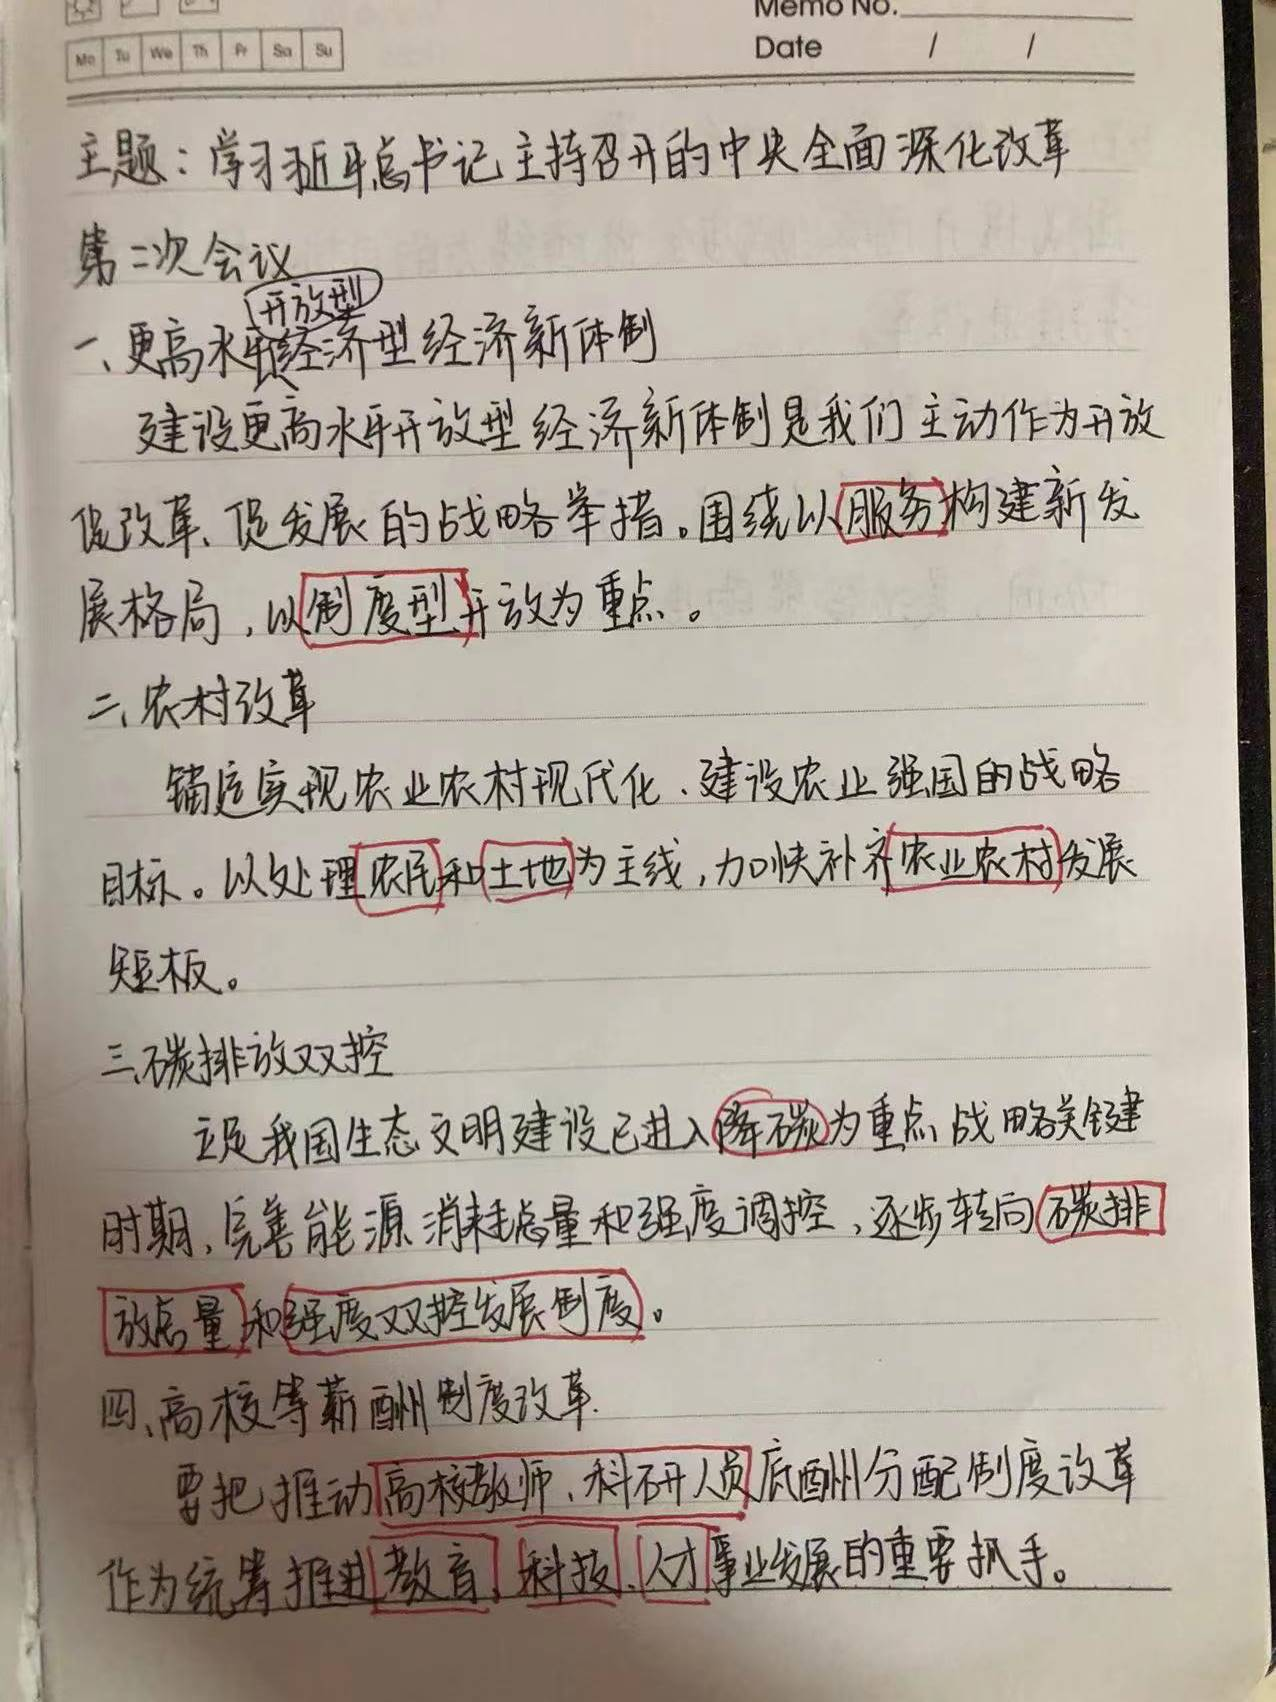 Memo No.
Mo Tu We Th Fr Sa Su
Date / /
主题：学习习近平总书记主持召开的中央全面深化改革
第二次会议
开放型
一、更高水平经济型经济新体制
建设更高水平开放型经济新体制是我们主动作为开放
促改革、促发展的战略举措。围绕以服务构建新发
展格局，以制度型开放为重点。
二、农村改革
锚定实现农业农村现代化、建设农业强国的战略
目标。以处理农民和土地为主线，加快补齐农业农村发展
短板。
三、碳排放双控
立足我国生态文明建设已进入降碳为重点战略关键
时期，完善能源消耗总量和强度调控，逐步转向碳排
放总量和强度双控发展制度。
四、高校等薪酬制度改革.
要把推动高校教师、科研人员底酬分配制度改革
作为统筹推进教育、科技、人才事业发展的重要抓手。